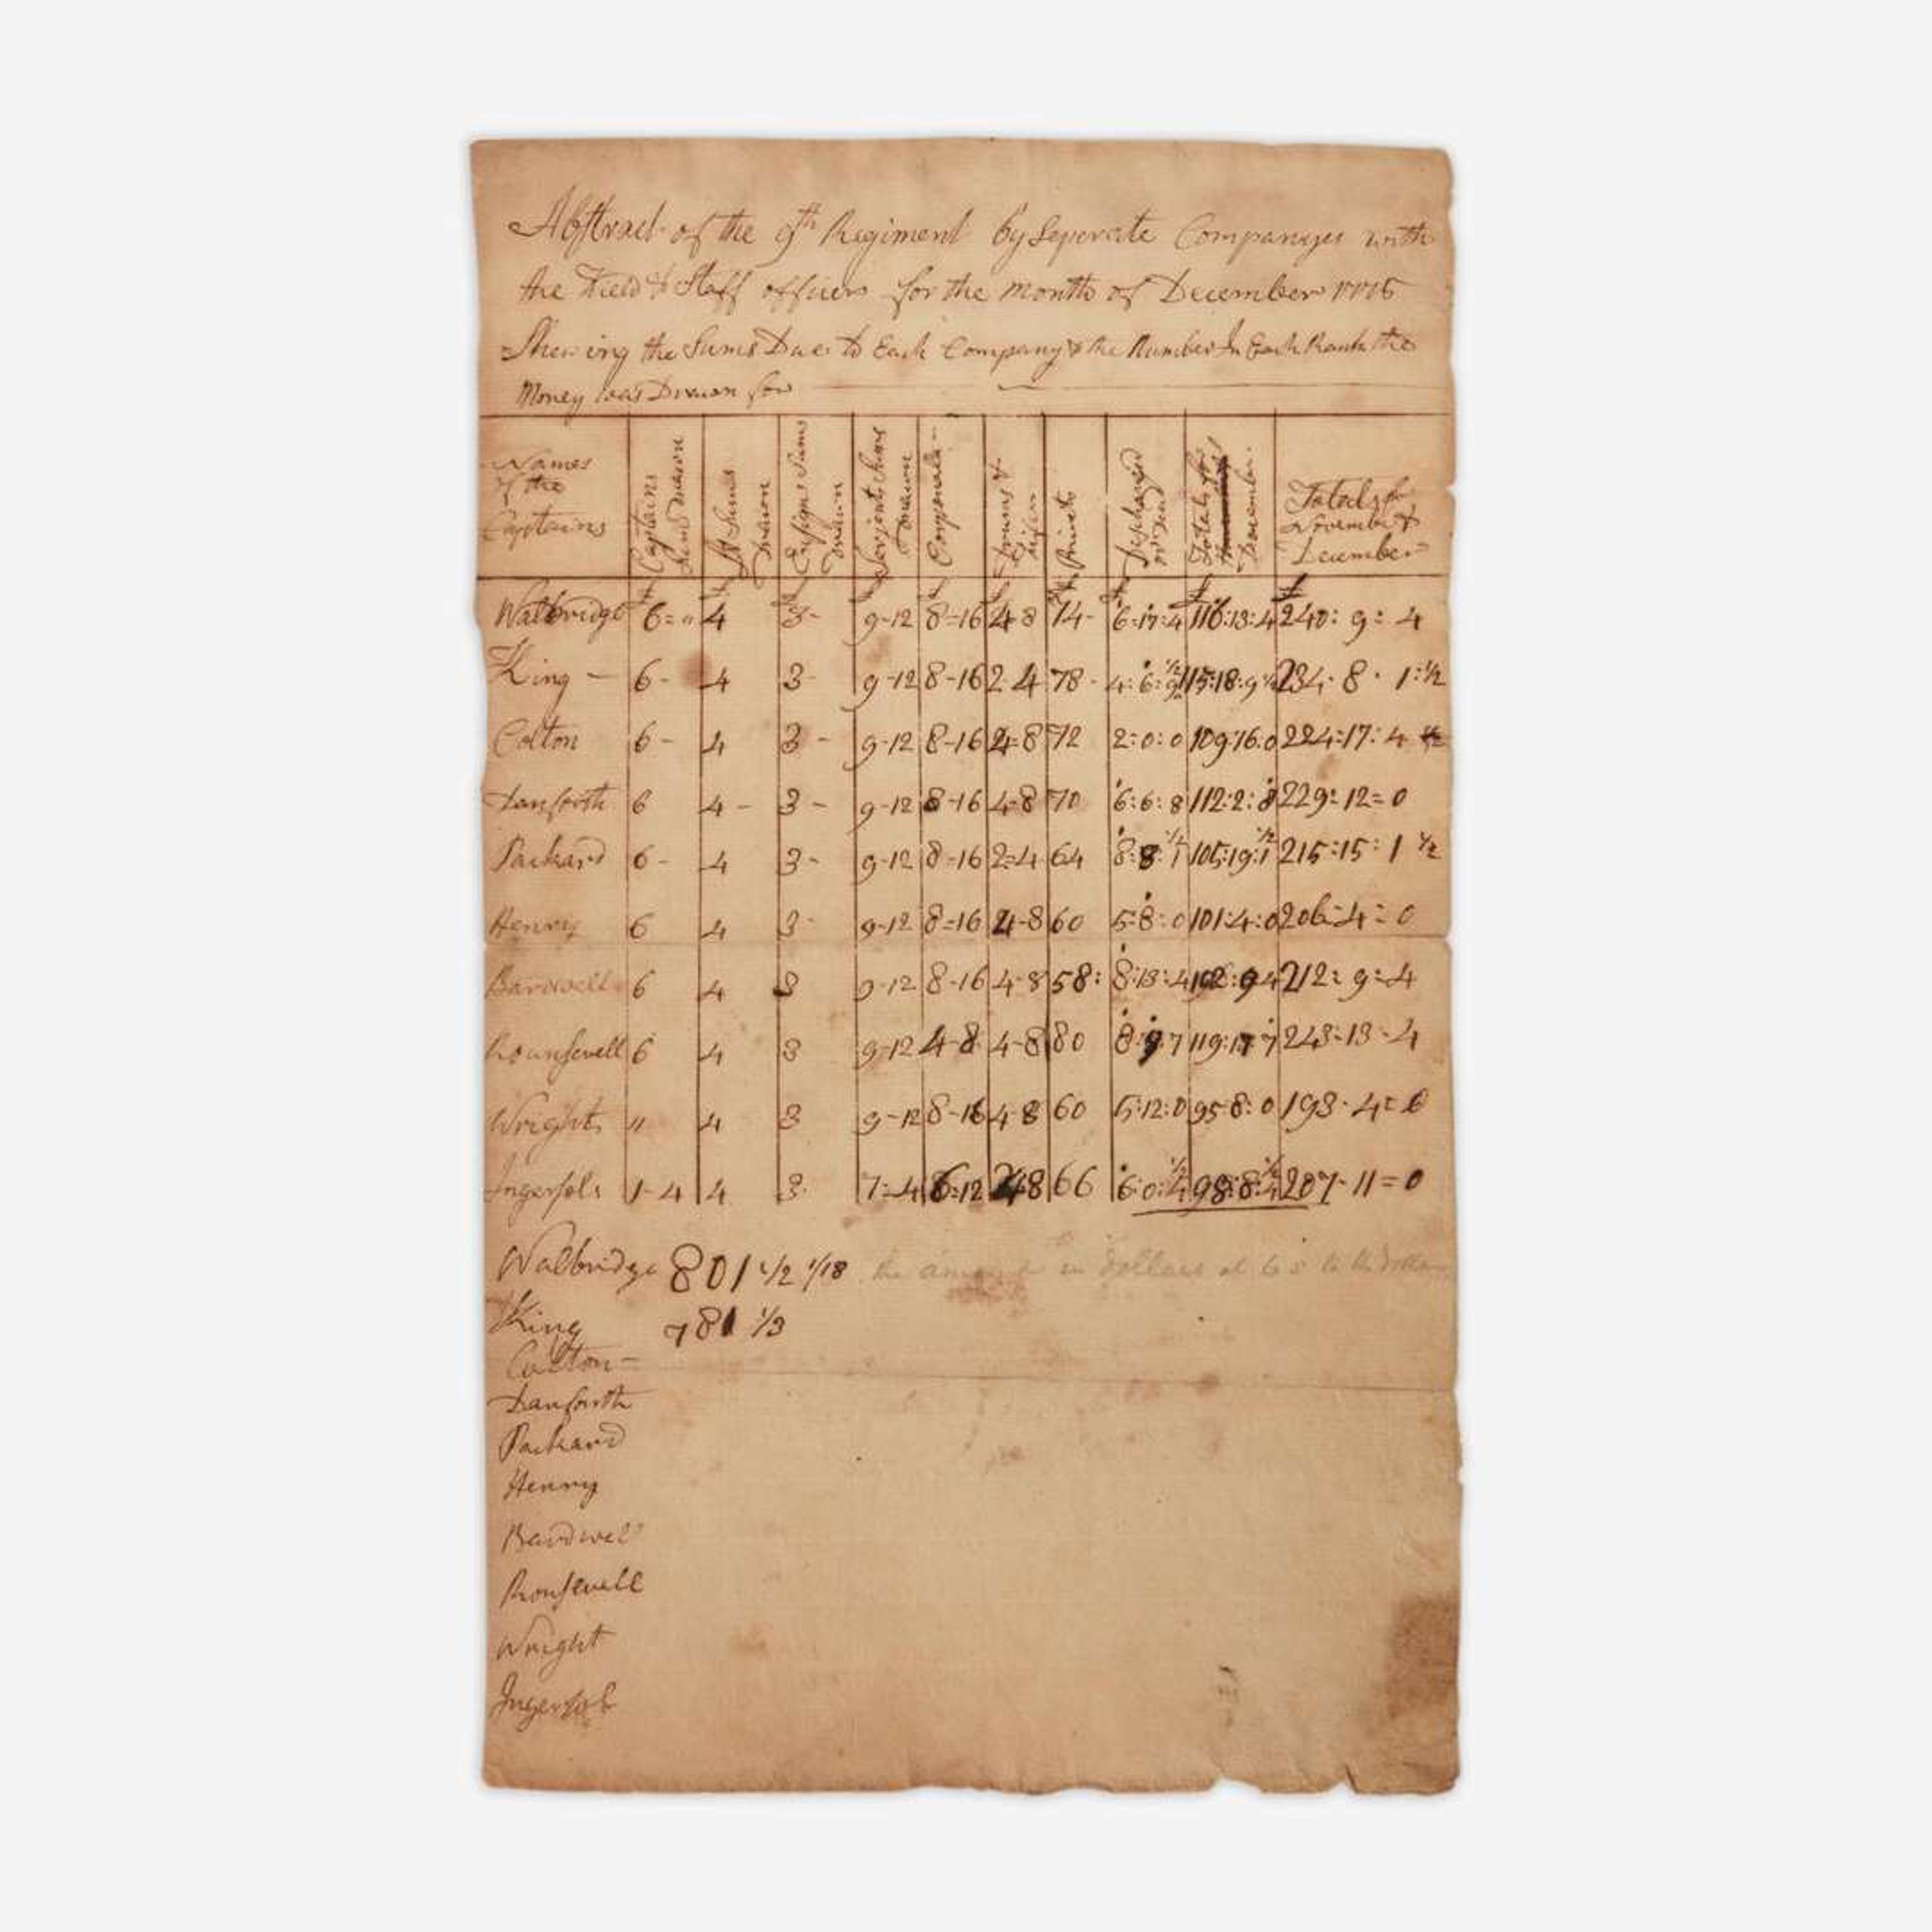 Abstract of the 9th Regiment by Seperate Companyes with
the Field & Staff officers for the month of December 1775
Shewing the Sums Due to Each Company & the Number In Each Rank the
Money was Drawn for
Names of the Captains | Captains Sums Drawn | Lt Sums Drawn | Ensigns Sums Drawn | Serjents Sums Drawn | Corporals | Drums & Fifes | Privets | Discharged | Totals for December | Totals for November & December
Walbridge 6 = " 4 3 - 9-12 8=16 4-8 74- 6:17:4 116:13:4 240: 9: 4
King - 6- 4 3- 9-12 8-16 2 4 78- 4:6:9 1/2 115:18:9 1/2 234. 8. 1:1/2
Colton 6- 4 3- 9-12 8-16 4=8 72 2:0:0 109:16:0 224:17:4
Danforth 6 4- 3- 9-12 8-16 4-8 70 6:6:8 112:2:8 229:12=0
Packard 6- 4 3- 9-12 8=16 2=4 64 8:8:1 1/2 105:19:1 1/2 215:15:1 1/2
Henry 6 4 3- 9-12 8=16 4-8 60 5:8:0 101:4:0 206:4:0
Bardwell 6 4 3 9-12 8-16 4-8 58: 8:13:4 102:9 4 212:9:4
Rounsevell 6 4 3 9-12 4-8 4-8 80 8:9:7 119:17 7 243-13-4
Wright " 4 3 9-12 8-16 4-8 60 5:12:0 95-8:0 193-4=6
Ingersols 1-4 4 3 7-4 6=12 48 66 6:0:4 1/2 98:8:4 1/2 207-11=0
Walbridge 801 1/2 1/18 the in dollars at 6s to the Dollar
King 781 1/3
Colton -
Danforth
Packard
Henry
Bardwell
Ronsevell
Wright
Ingersols